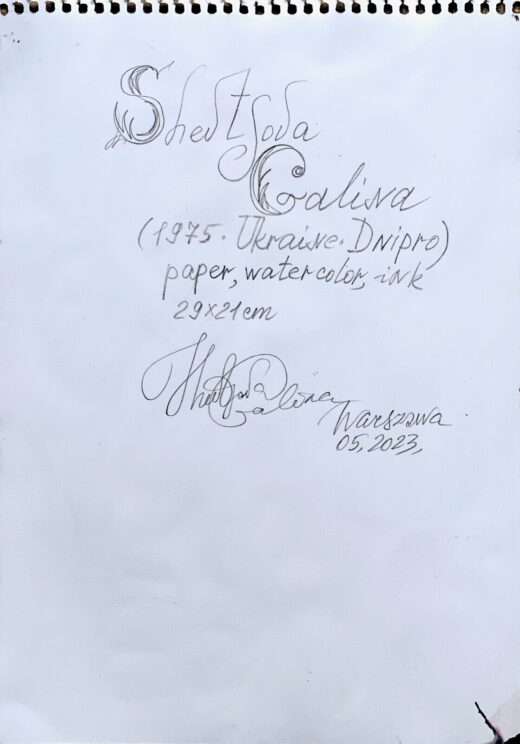 Shevtsova
Galina
(1975. Ukraine. Dnipro)
paper, watercolor, ink
29x21cm
Galina
Warszawa
05, 2023,